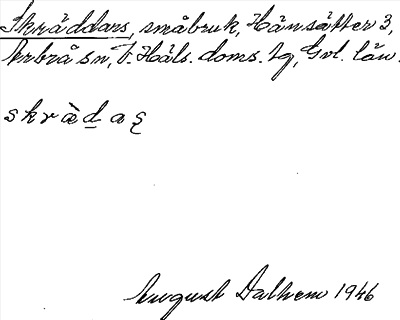 Skräddars, småbruk, Hänsätter 3,
Arbrå sn, V. Häls. doms. tg, Gvl. län.
skrä̀d̲aʂ
August Dalhem 1946